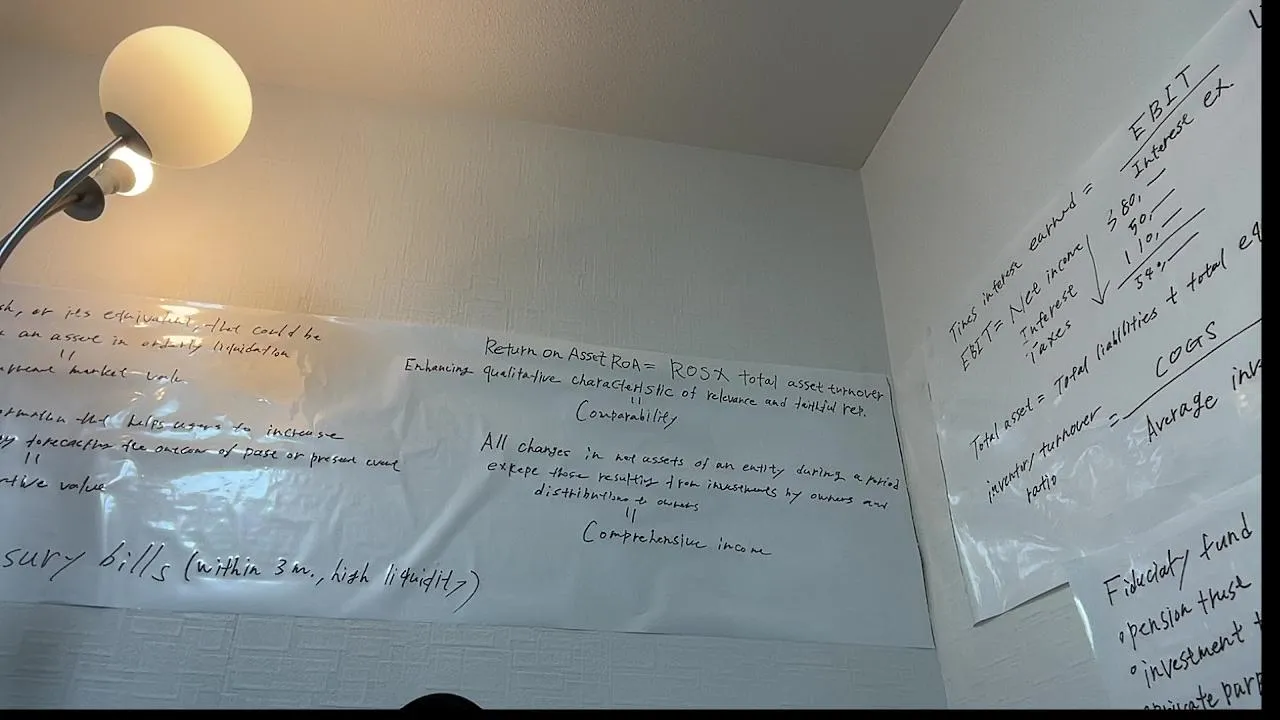 or its equivalent, that could be
an asset in orderly liquidation
"
market
that helps users to increase
forecasting the outcome of past or present event
"
value
bills (within 3 m., high liquidity)
Return on Asset ROA = ROS x total asset turnover
Enhancing qualitative characteristic of relevance and faithful rep.
"
Comparability
All changes in net assets of an entity during a period
except those resulting from investments by owners and
distributions to owners
"
Comprehensive income
Times interest earned = EBIT
Interest ex.
EBIT = Net income
80,-
Interest
50,-
Taxes
110,-
Total asset = Total liabilities + total
inventory turnover = COGS
ratio
Average
Fiduciary fund
• pension trust
• investment